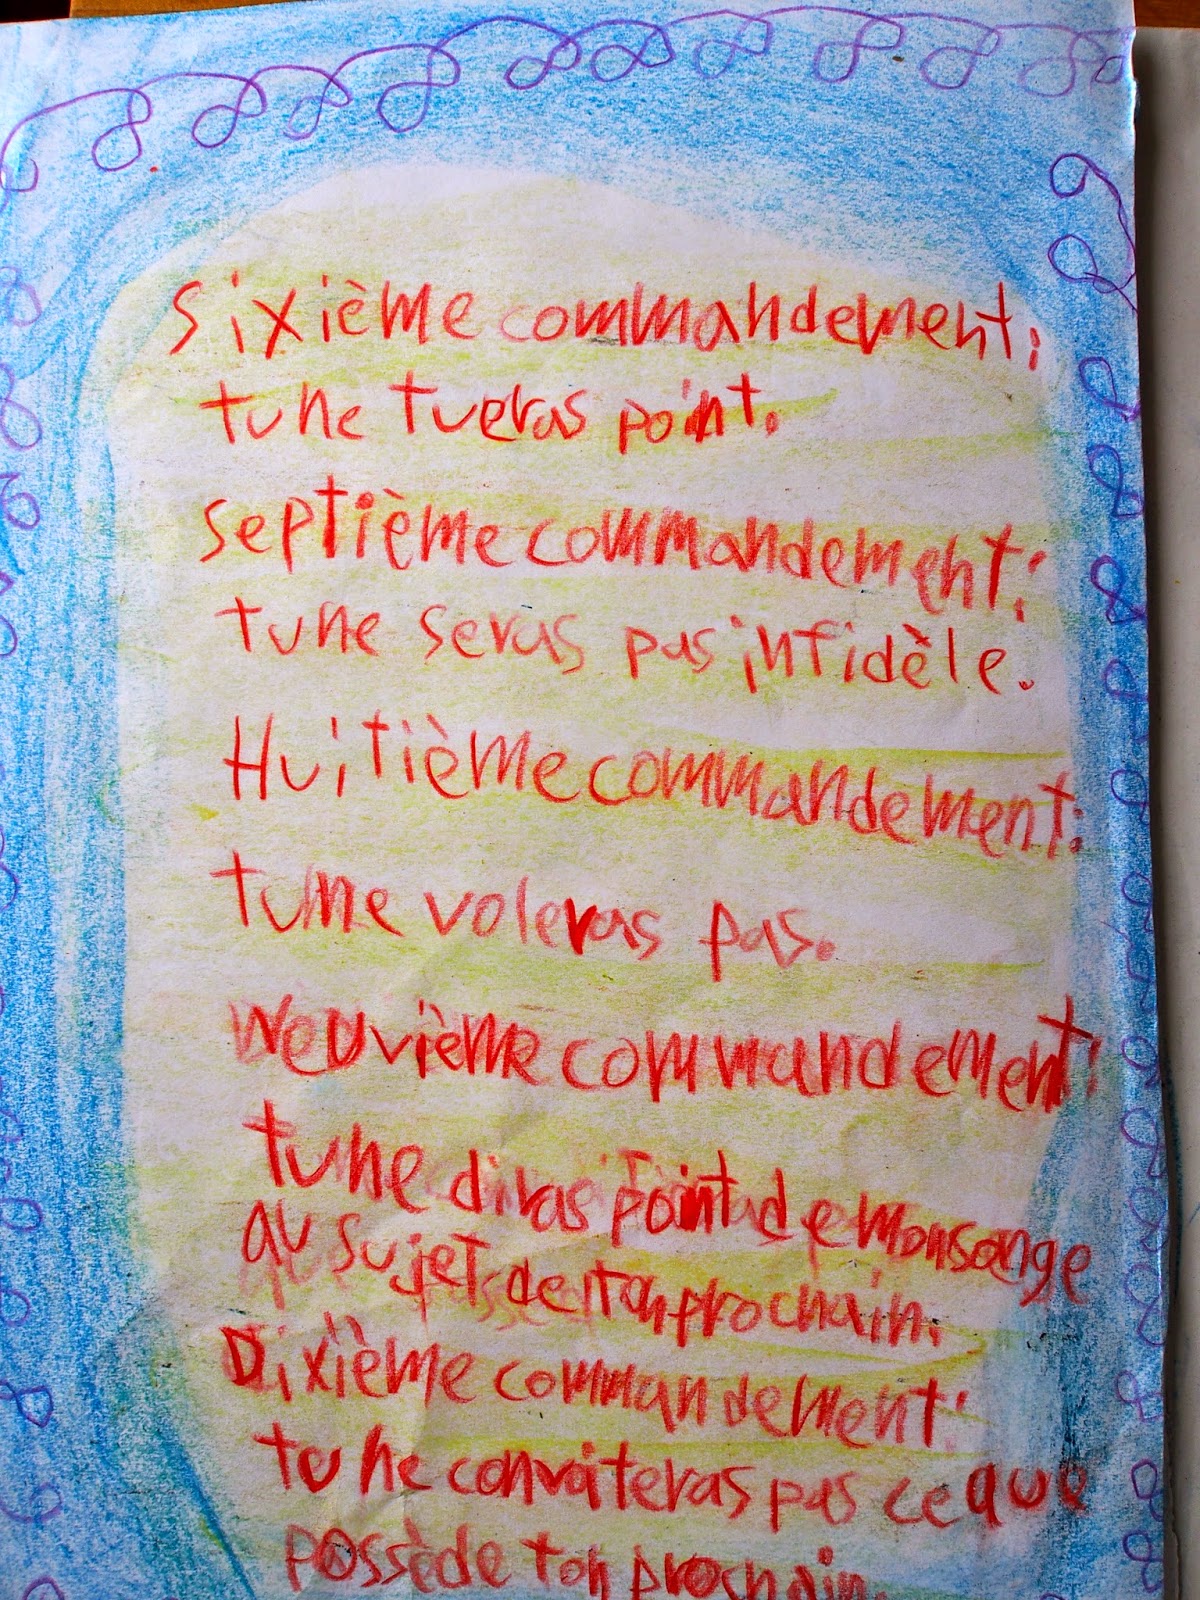 sixième commandement:
tu ne tueras point.
septième commandement:
tu ne seras pas infidèle.
Huitième commandement:
tu ne voleras pas.
Neuvième commandement:
tu ne diras point de monsonge
au sujet de ton prochain.
Dixième commandement:
tu ne convoiteras pas ce que
possède ton prochain.